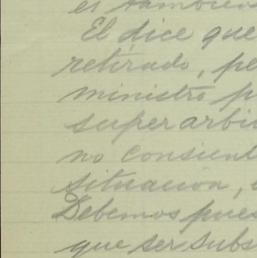 es tambien
El dice que
retirado, pe
ministro p
superarbi
no consient
situacion,
Debemos pues
que ser subs